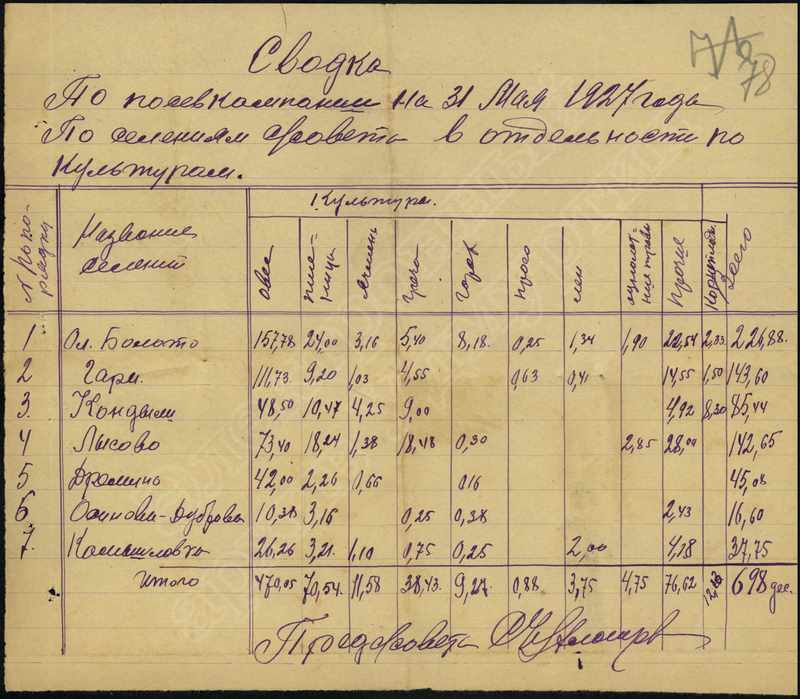 78
Сводка
По посевкампании на 31 Мая 1927 года
По селениям с/совета в отдельности по
Культурам.
№ по порядку Название селений Культура. Всего
Овес Пшеница Ячмень Греча Горох Просо Лен однолетния травы Прочие
1 Ол. Болото 157,78 24,00 3,16 5,40 8,18. 0,25 1,34 1,90 22,54 2,33 226,88.
2 Гари. 111,73 9,20 1,03 4,55 0,63 0,41 14,55 1,50 143,60
3. Кондыли 48,50 10,47 4,25 9,00 4,92 8,30 85,44
4 Лысово 73,40 18,24 1,38 18,48 0,30 2,85 28,00 142,65
5 Дромино 42,00 2,26 0,66 016 45,08
6 Осинова-Дуброва 10,38 3,16 0,25 0,38 2,43 16,60
7. Камышловка 26,26 3,21 1,10 0,75 0,25 2,00 4,18 37,75
Итого 470,05 70,54 11,58 38,43. 9,27. 0,88 3,75 4,75 76,62 698 дес.
Предс/совета